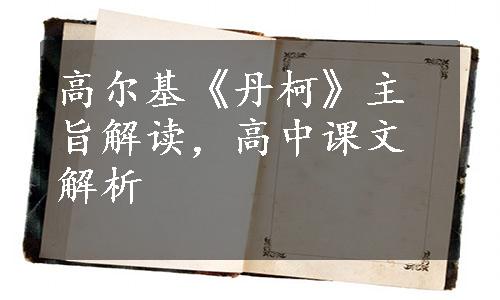 高尔基《丹柯》主
旨解读，高中课文
解析